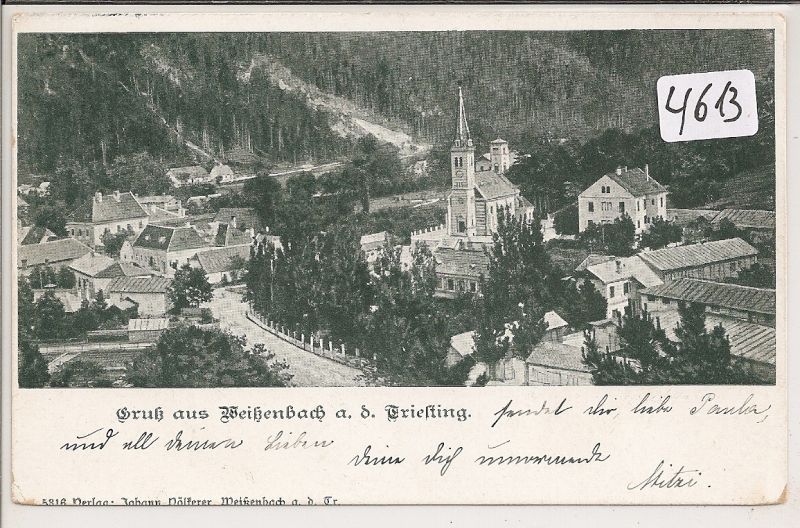 4613
Gruß aus Weißenbach a. d. Triesting. sendet dir, liebe Paula,
und all deinen Lieben
deine dich umarmende
Mitzi.
5316 Verlag: Johann Völkerer, Weißenbach a. d. Tr.